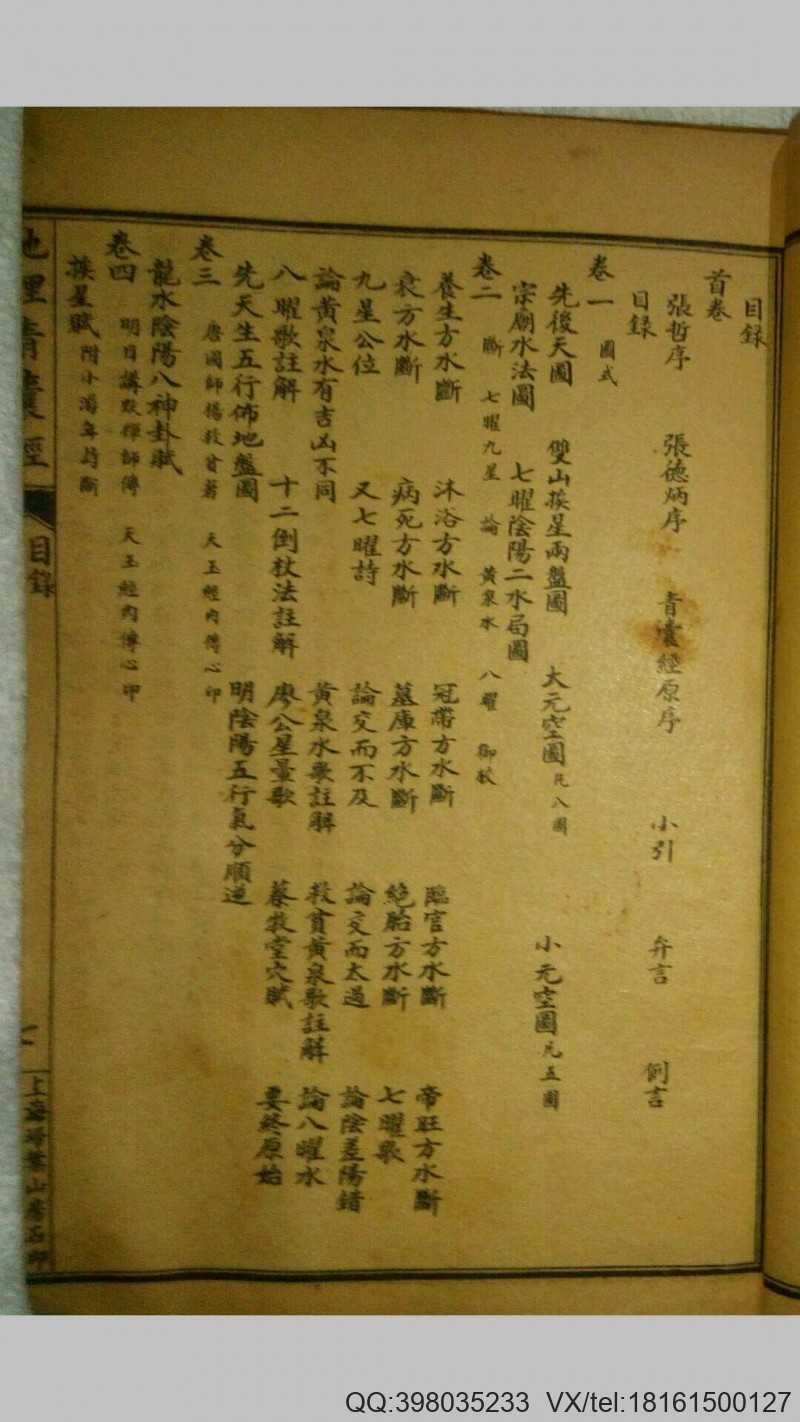 目錄
首卷
張哲序　張德炳序　青囊經原序　小引　弁言　例言
目錄
卷一　圖式
先後天圖　雙山挨星兩盤圖　大元空圖凡八圖　小元空圖凡五圖
宗廟水法圖　七曜陰陽二水局圖
卷二　斷　七曜九星　論　黃泉水　八曜
養生方水斷　沐浴方水斷　冠帶方水斷　臨官方水斷　帝旺方水斷
衰方水斷　病死方水斷　墓庫方水斷　絕胎方水斷　七曜
九星公位　又七曜詩　論交而不及　論交而太過　論陰差陽錯
論黃泉水有吉凶不同　黃泉水註解　救貧黃泉歌註解　論八曜水
八曜歌註解　十二倒杖法註解　廖公星暈歌　蔡牧堂穴賦　要終原始
先天生五行佈地盤圖　明陰陽五行氣分順逆
卷三　唐國師楊救貧著　天玉經內傳心印
龍水陰陽八神卦賦
卷四　明目講默禪師傳　天玉經內傳心印
挨星賦　附小斷
地理青囊經　目錄　上海埽葉山房石印
QQ:398035233 VX/tel:18161500127